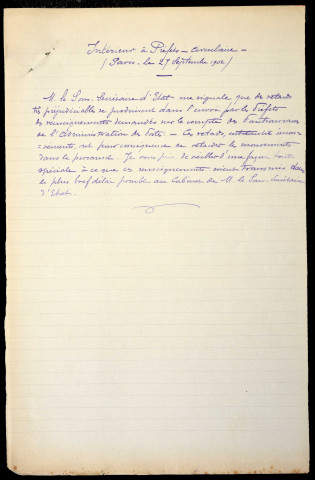 Intérieur à Préfets — circulaire —
(Paris, le 27 Septembre 1902)
M. le Sous-Secrétaire d'Etat me signale que des retards
très préjudiciables se produisent dans l'envoi par les Préfets
des renseignements demandés sur le compte des
de l'Administration des Postes — Ces retards,
ont pour conséquence de retarder les mouvements
dans le personnel. Je vous prie de veiller d'une façon toute
spéciale à ce que ces renseignements soient transmis dans
le plus bref délai possible au Cabinet de M. le Sous-Secrétaire
d'Etat.